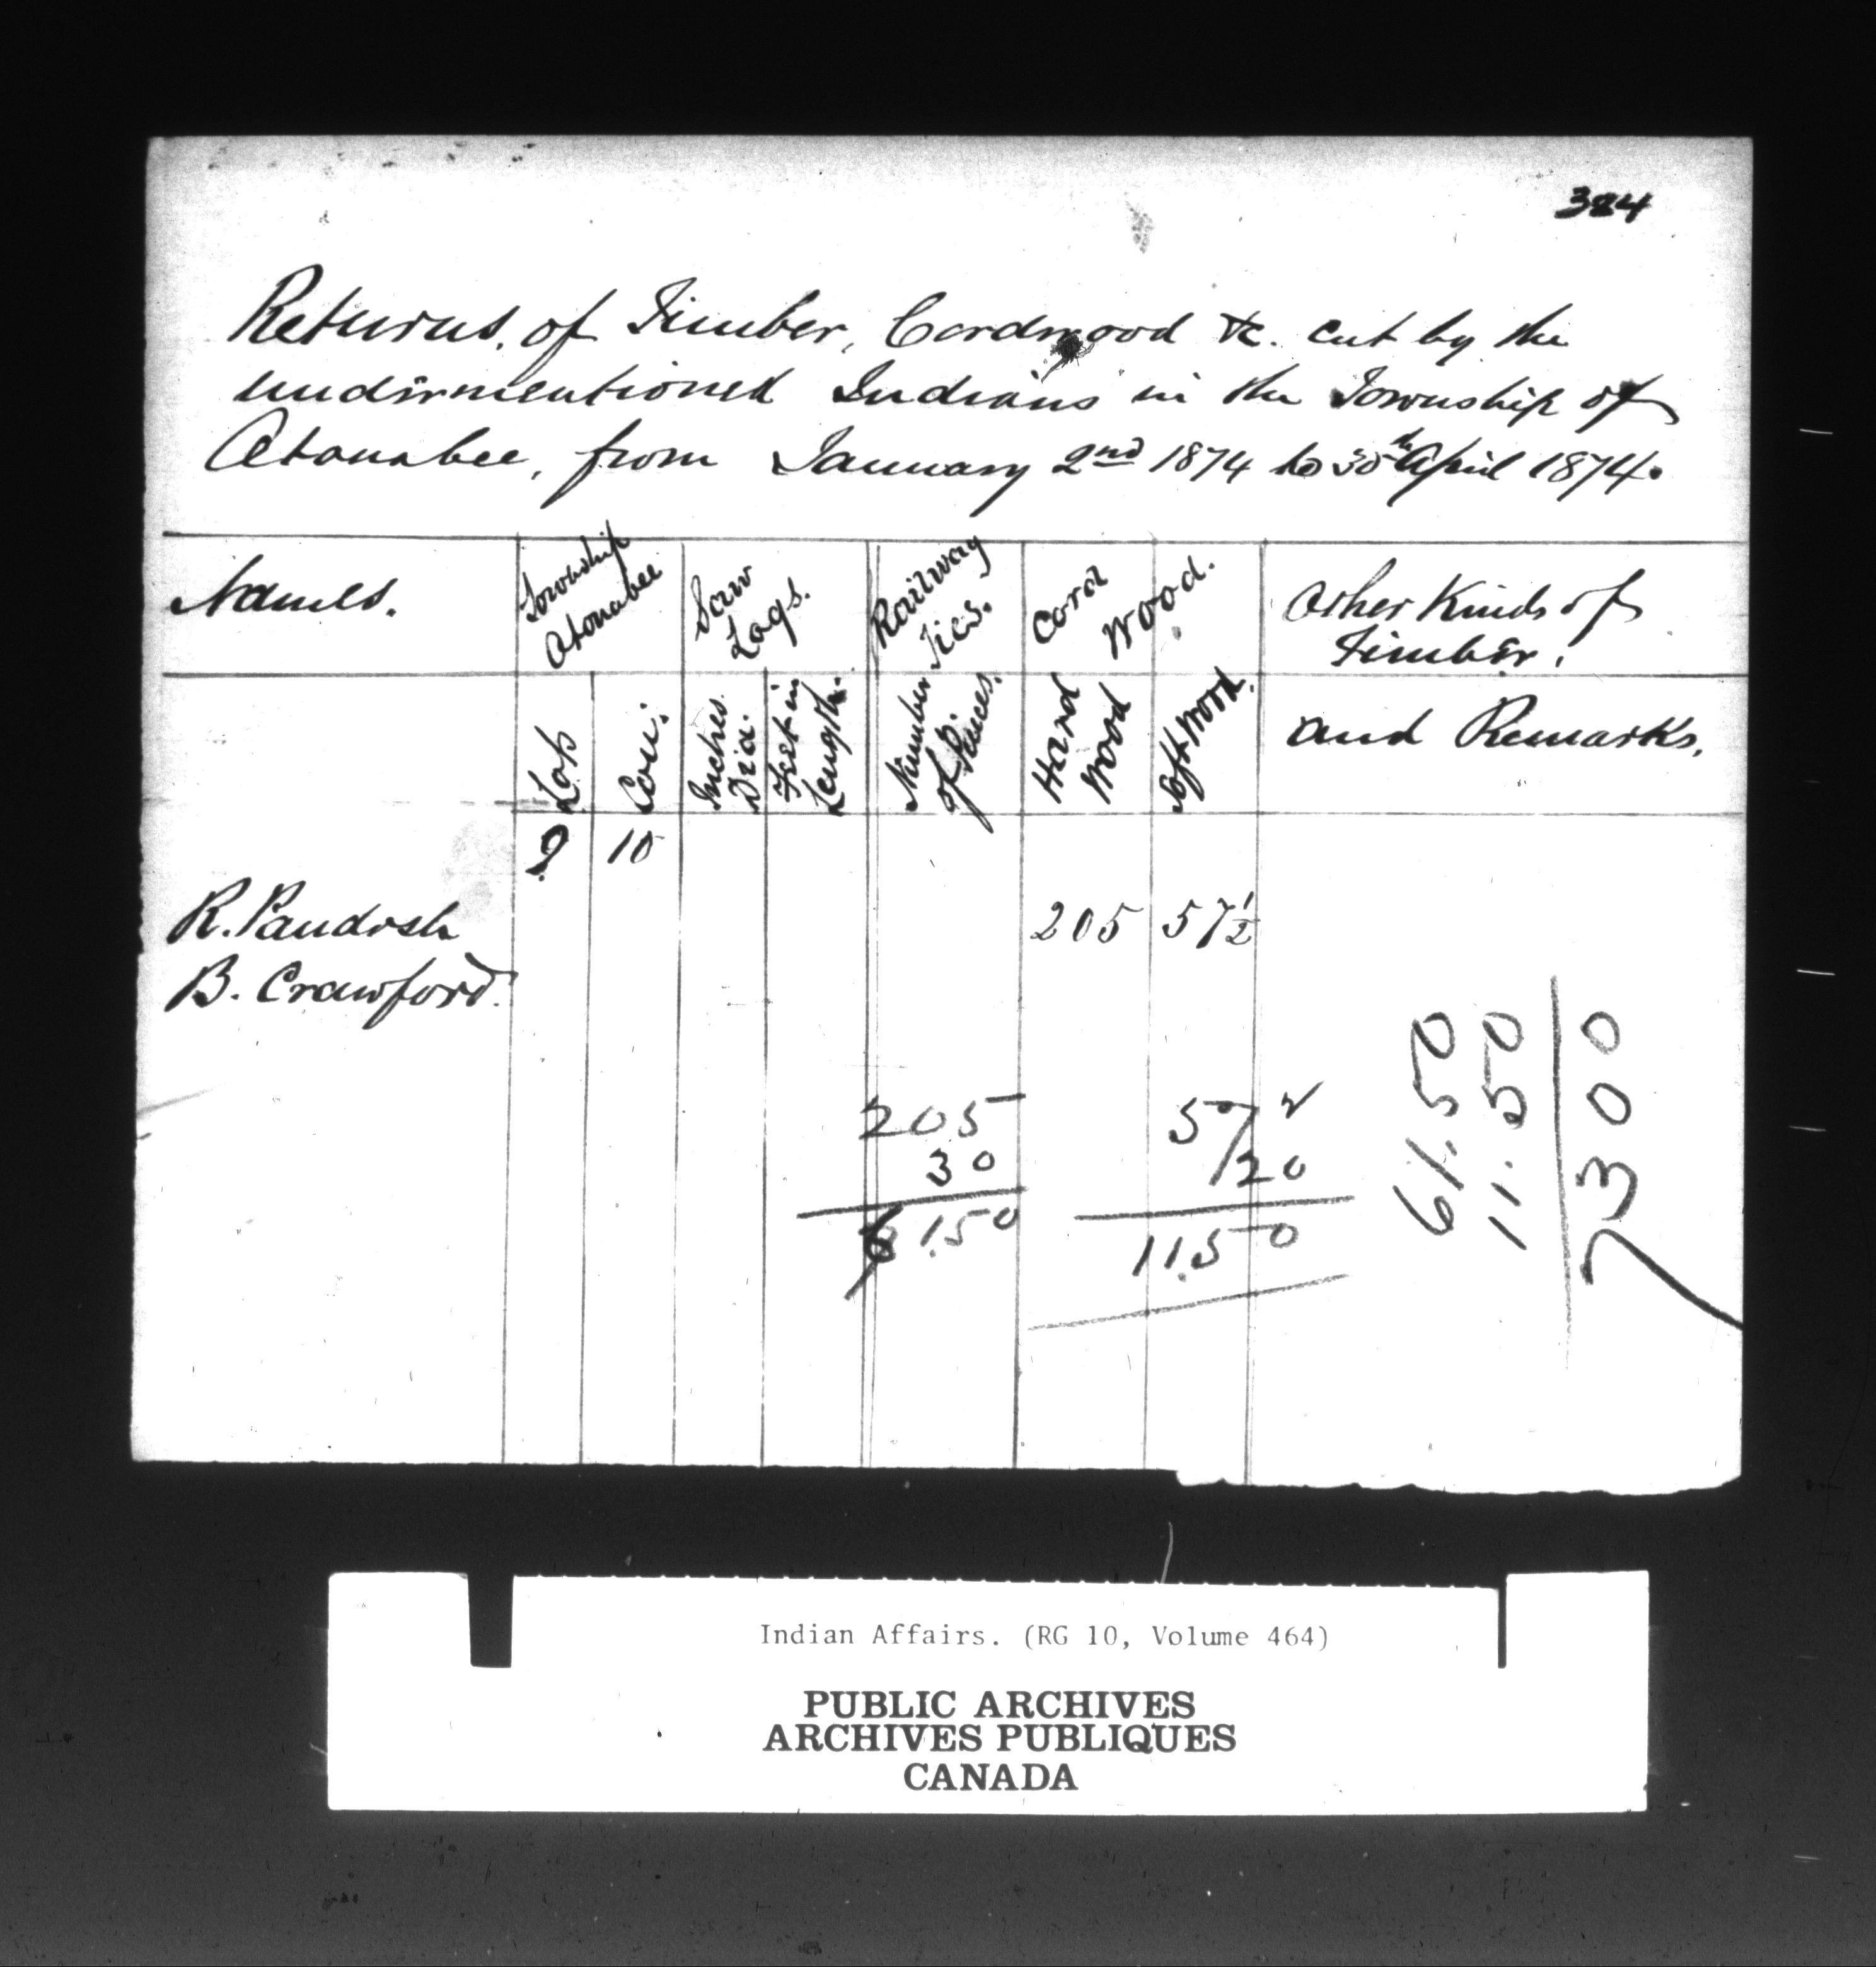 384
Returns, of Timber, Cordwood &c. cut by the
undermentioned Indians in the Township of
Otonabee, from January 2nd 1874 to 30th April 1874.
Names.
Township
Otonabee
Saw
Logs.
Railway
Ties.
Cord
Wood.
Other Kinds of
Timber.
Lots
Con:
Inches
Dia.
Feet in
Length.
Number
of Pieces.
Hard
Wood
Soft Wood.
and Remarks.
9 10
R. Paudash 205 57½
B. Crawford.
205
30
61.50
57½
20
11.50
61.50
11.50
7300
Indian Affairs. (RG 10, Volume 464)
PUBLIC ARCHIVES
ARCHIVES PUBLIQUES
CANADA